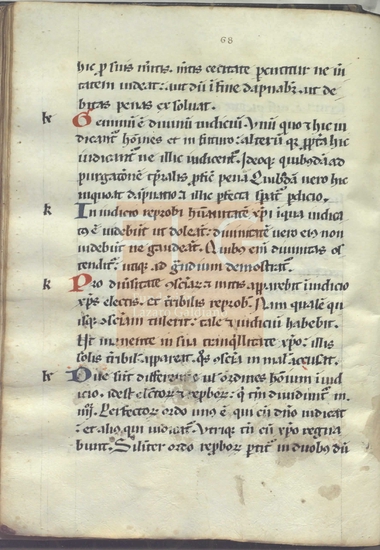 68
hic p suis mitis mtis cecitate pcutitur ne ui
tatem uideat: aut dũ ĩ fine dapnabr̃ ut de
bitas penas exsoluat.
k Geminũ ẽ diuinũ iudiciũ. Vnũ quo ⁊ hic iu
dicant hoĩes et in futuro: alterũ qr̃ ppt̃a hic
iudicant̃ ne illic iudicent̃. Ideoqꝫ quibusdã ad
purgatõnẽ tp̃ralis pfic̃ pena. Quibusdã uero hic
dapnatio ⁊ illic pfecta spat̃ pdicio.
k In iudicio reprobi humanitatẽ xp̃i ĩ qua iudica
t᷒ ẽ uidebũt ut doleãt: diuinitatẽ uero eiꝰ non
uidebũt ne gaudeãt. Quibus eñ diuinitas os
tendit̃: utiqꝫ ad gaudiũ demostrat̃.
k Pro diũsitate ↄsciẽciaꝝ ⁊ mitis apparebit ĩ iudicio
xp̃s electis. et tribilis reprobis. Nam qualẽ qui
squis ↄsciam tulerit. tale ⁊ iudiciũ habebit.
Ut manente in sua trãquilitate xp̃o: illis
solis tribil᷒ appareat. q̃s ↄscia in mal᷒ accusat.
k Due sũt differentie uel ordines hoĩum ĩ iudi
cio. idest electoꝝ ⁊ reproboꝝ: q tñ diuidunt̃ in
iiii᷒. Perfectoꝝ ordo unus ẽ qui cũ dño iudicat
: et aliꝰ qui iudicat̃. Vtriqꝫ tñ cũ xp̃o regna
bunt. Siliter ordo reproboꝝ partit̃ in duobus dũ